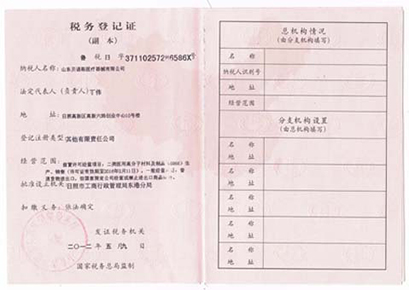 税务登记证
(副本)
鲁 税 日 字 371102572 6586X 号
纳税人名称: 山东 医疗器械有限公司
法定代表人 (负责人) 丁伟
地址: 日照高新区高新六路创业中心10号楼
登记注册类型: 其他有限责任公司
经营范围: 前置许可经营项目: 二类医用高分子材料及制品
批准设立机关: 日照市工商行政管理局东港分局
扣缴义务: 依法确定
发证税务机关
二〇一二年 五 月 九 日
国家税务总局监制
总机构情况
(由分支机构填写)
名称
纳税人识别号
地址
经营范围
分支机构设置
(由总机构填写)
名称
地址
名称
地址
名称
地址
名称
地址
名称
地址